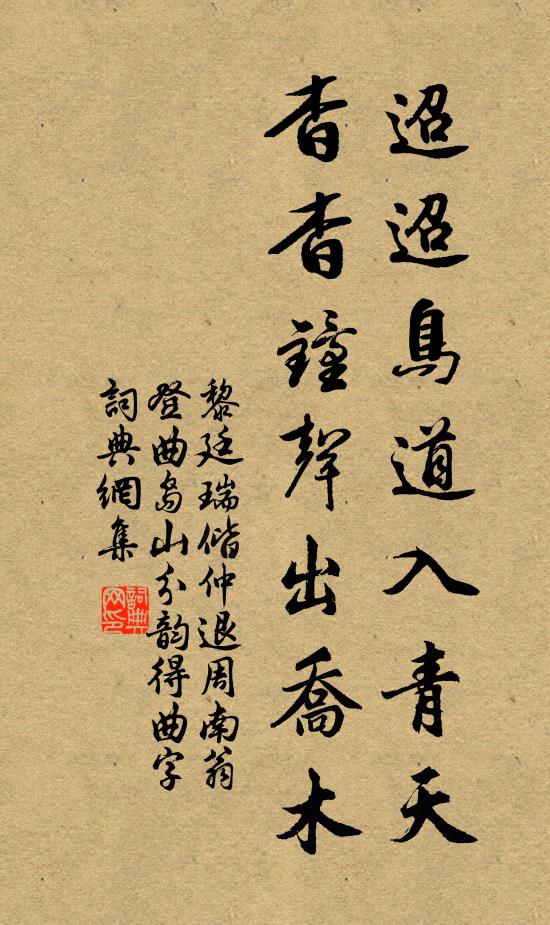 迢迢鳥道入青天
杳杳鐘聲出喬木
黎廷瑞偕仲退周南翁
登曲島山分韵得曲字
詞典網集
詞典網印